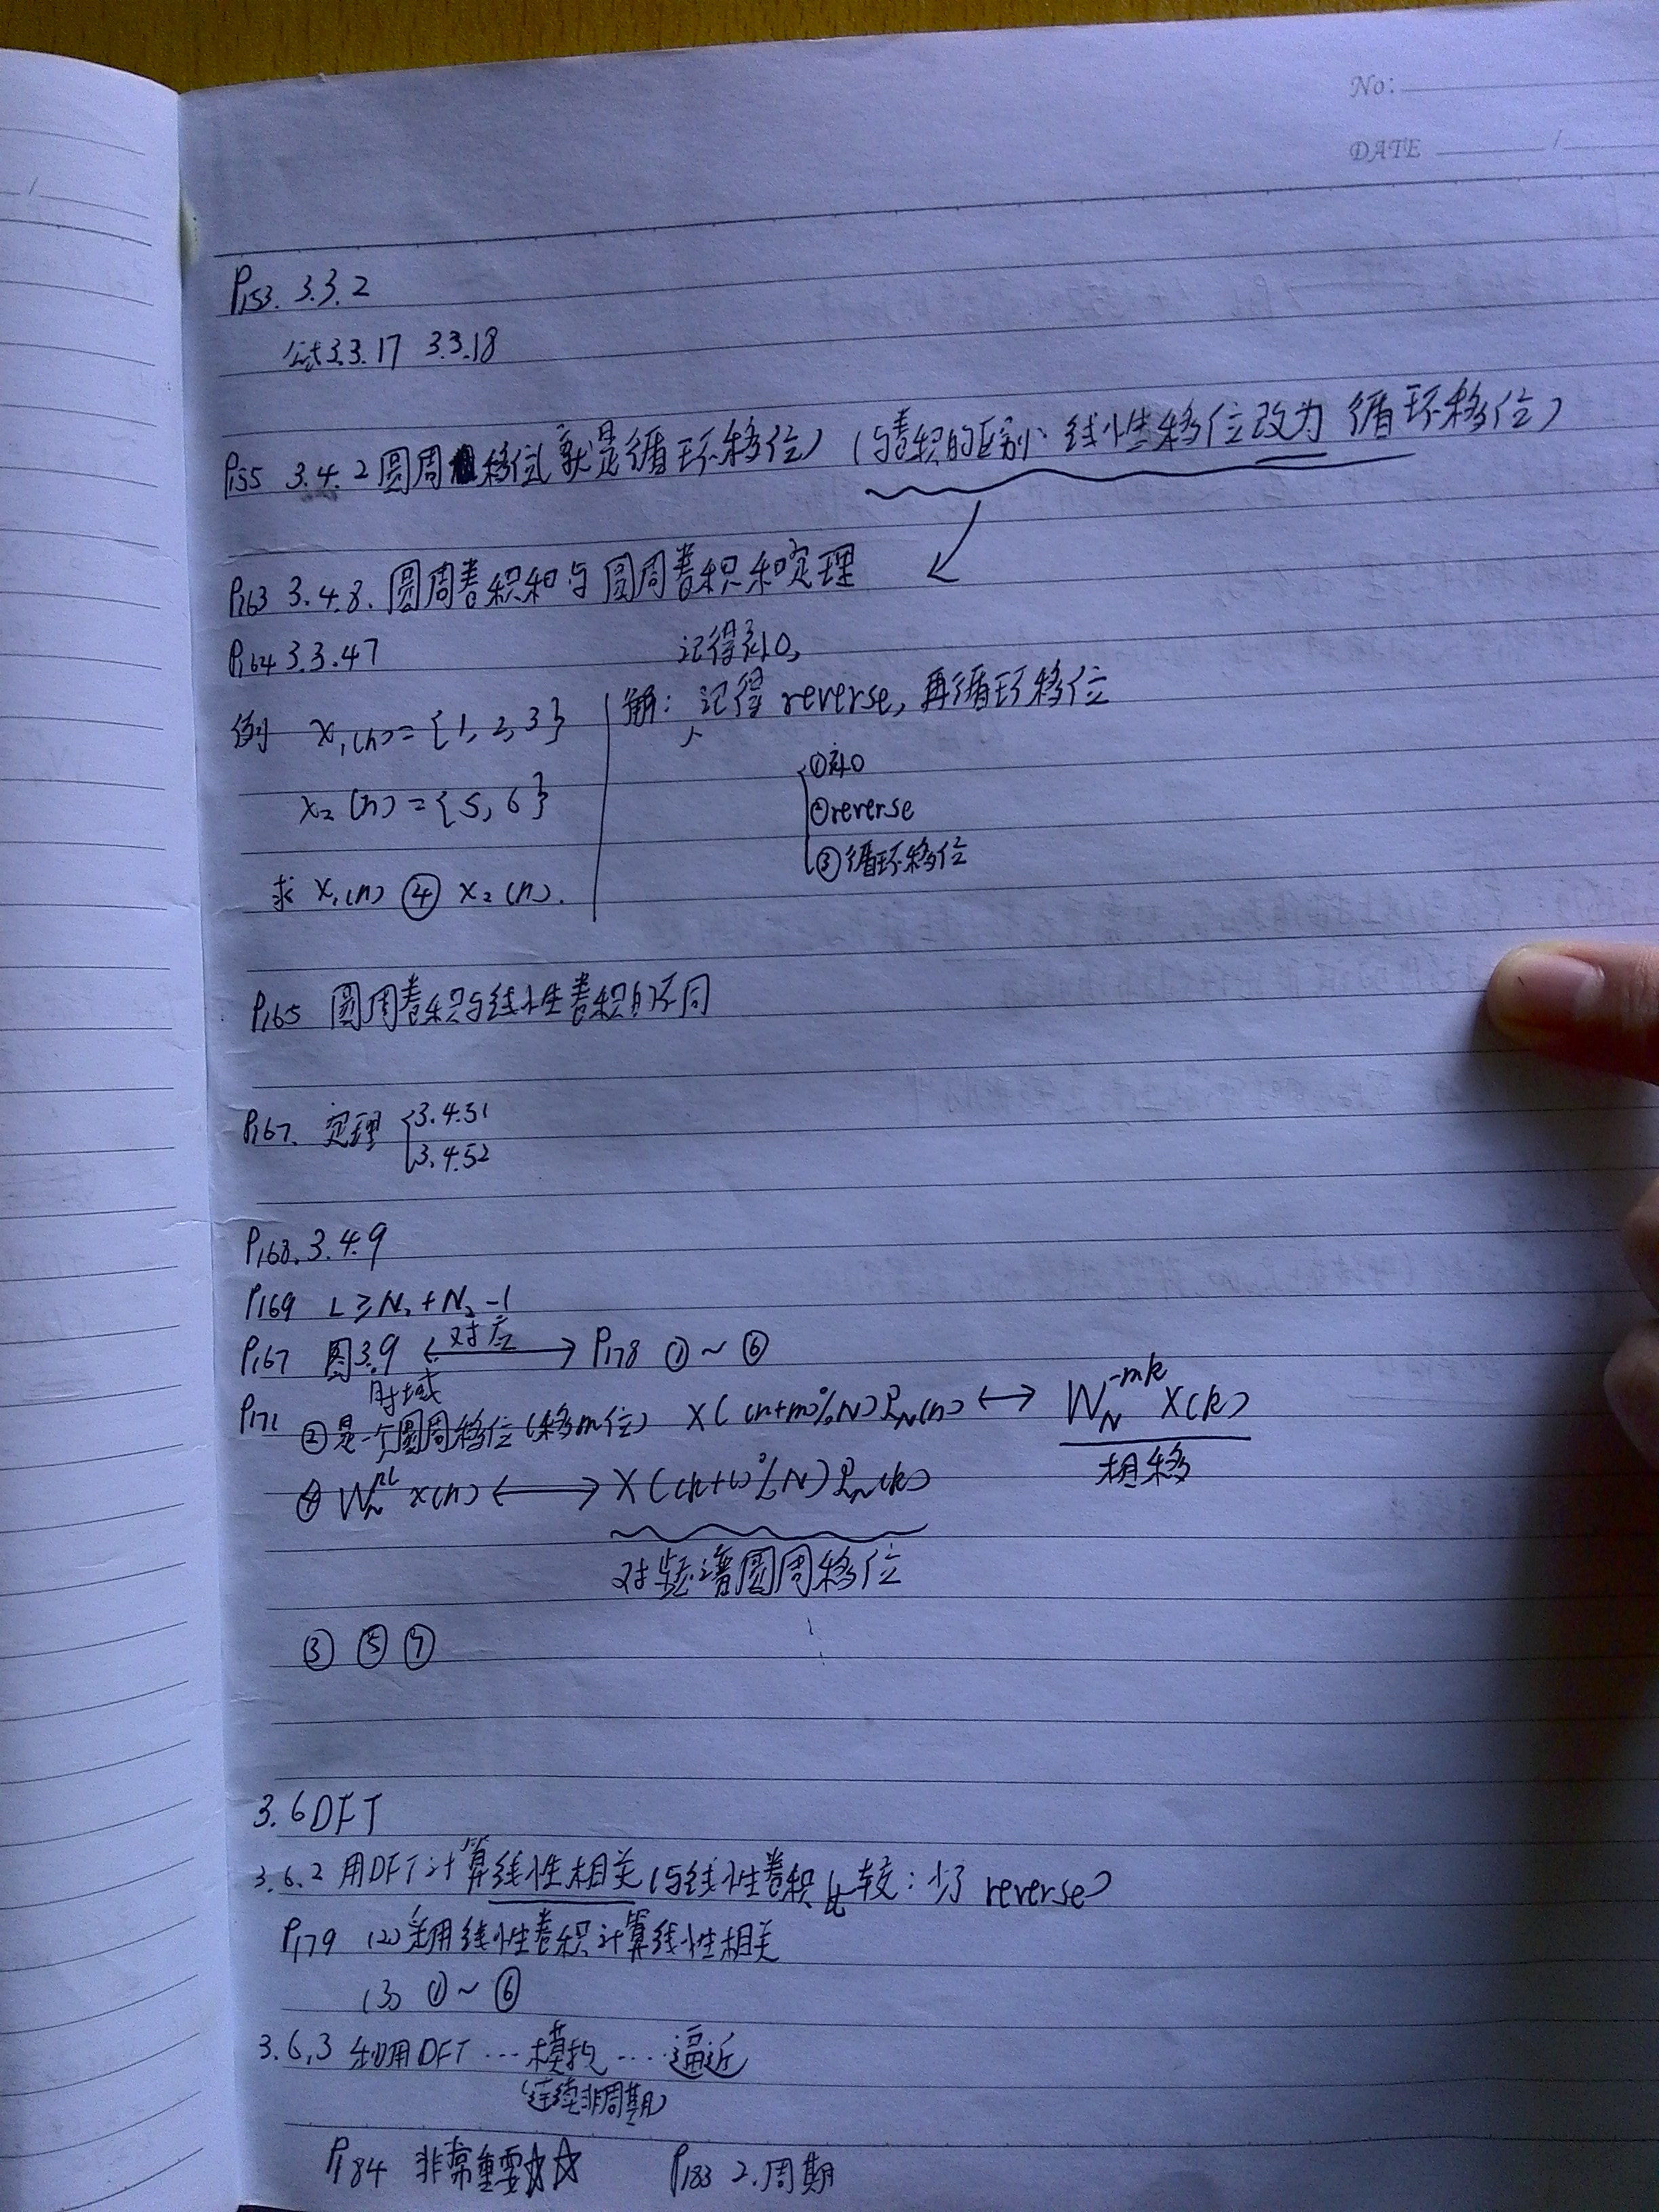 No:
DATE /
P153. 3.3.2
公式3.3.17 3.3.18
P155 3.4.2圆周移位(就是循环移位)(与卷积的区别:线性移位改为循环移位)
P163 3.4.8.圆周卷积和与圆周卷积和定理
P164 3.3.47
记得补0,
例 x₁(n)={1,2,3} 解:记得reverse,再循环移位
①补0
x₂(n)={5,6} ②reverse
③循环移位
求 x₁(n) ④ x₂(n).
P165 圆周卷积与线性卷积的不同
P167. 定理 {3.4.51
3.4.52
P168.3.4.9
P169 L≥N₁+N₂-1
P167 图3.9 ←对应→ P178 ①~⑥
时域
P171 ②是一个圆周移位(移m位) X((n+m)%N)R_N(n)↔W_N^{-mk}X(k)
相移
④W_N^{nl} x(n)↔X((k+l)%N)R_N(k)
对频谱圆周移位
③ ⑤ ⑦
3.6DFT
3.6.2用DFT计算线性相关(与线性卷积比较:少了reverse)
P179 (2)采用线性卷积计算线性相关
(3) ①~⑥
3.6.3利用DFT…模拟…逼近
(连续非周期)
P184 非常重要☆☆ P183 2.周期